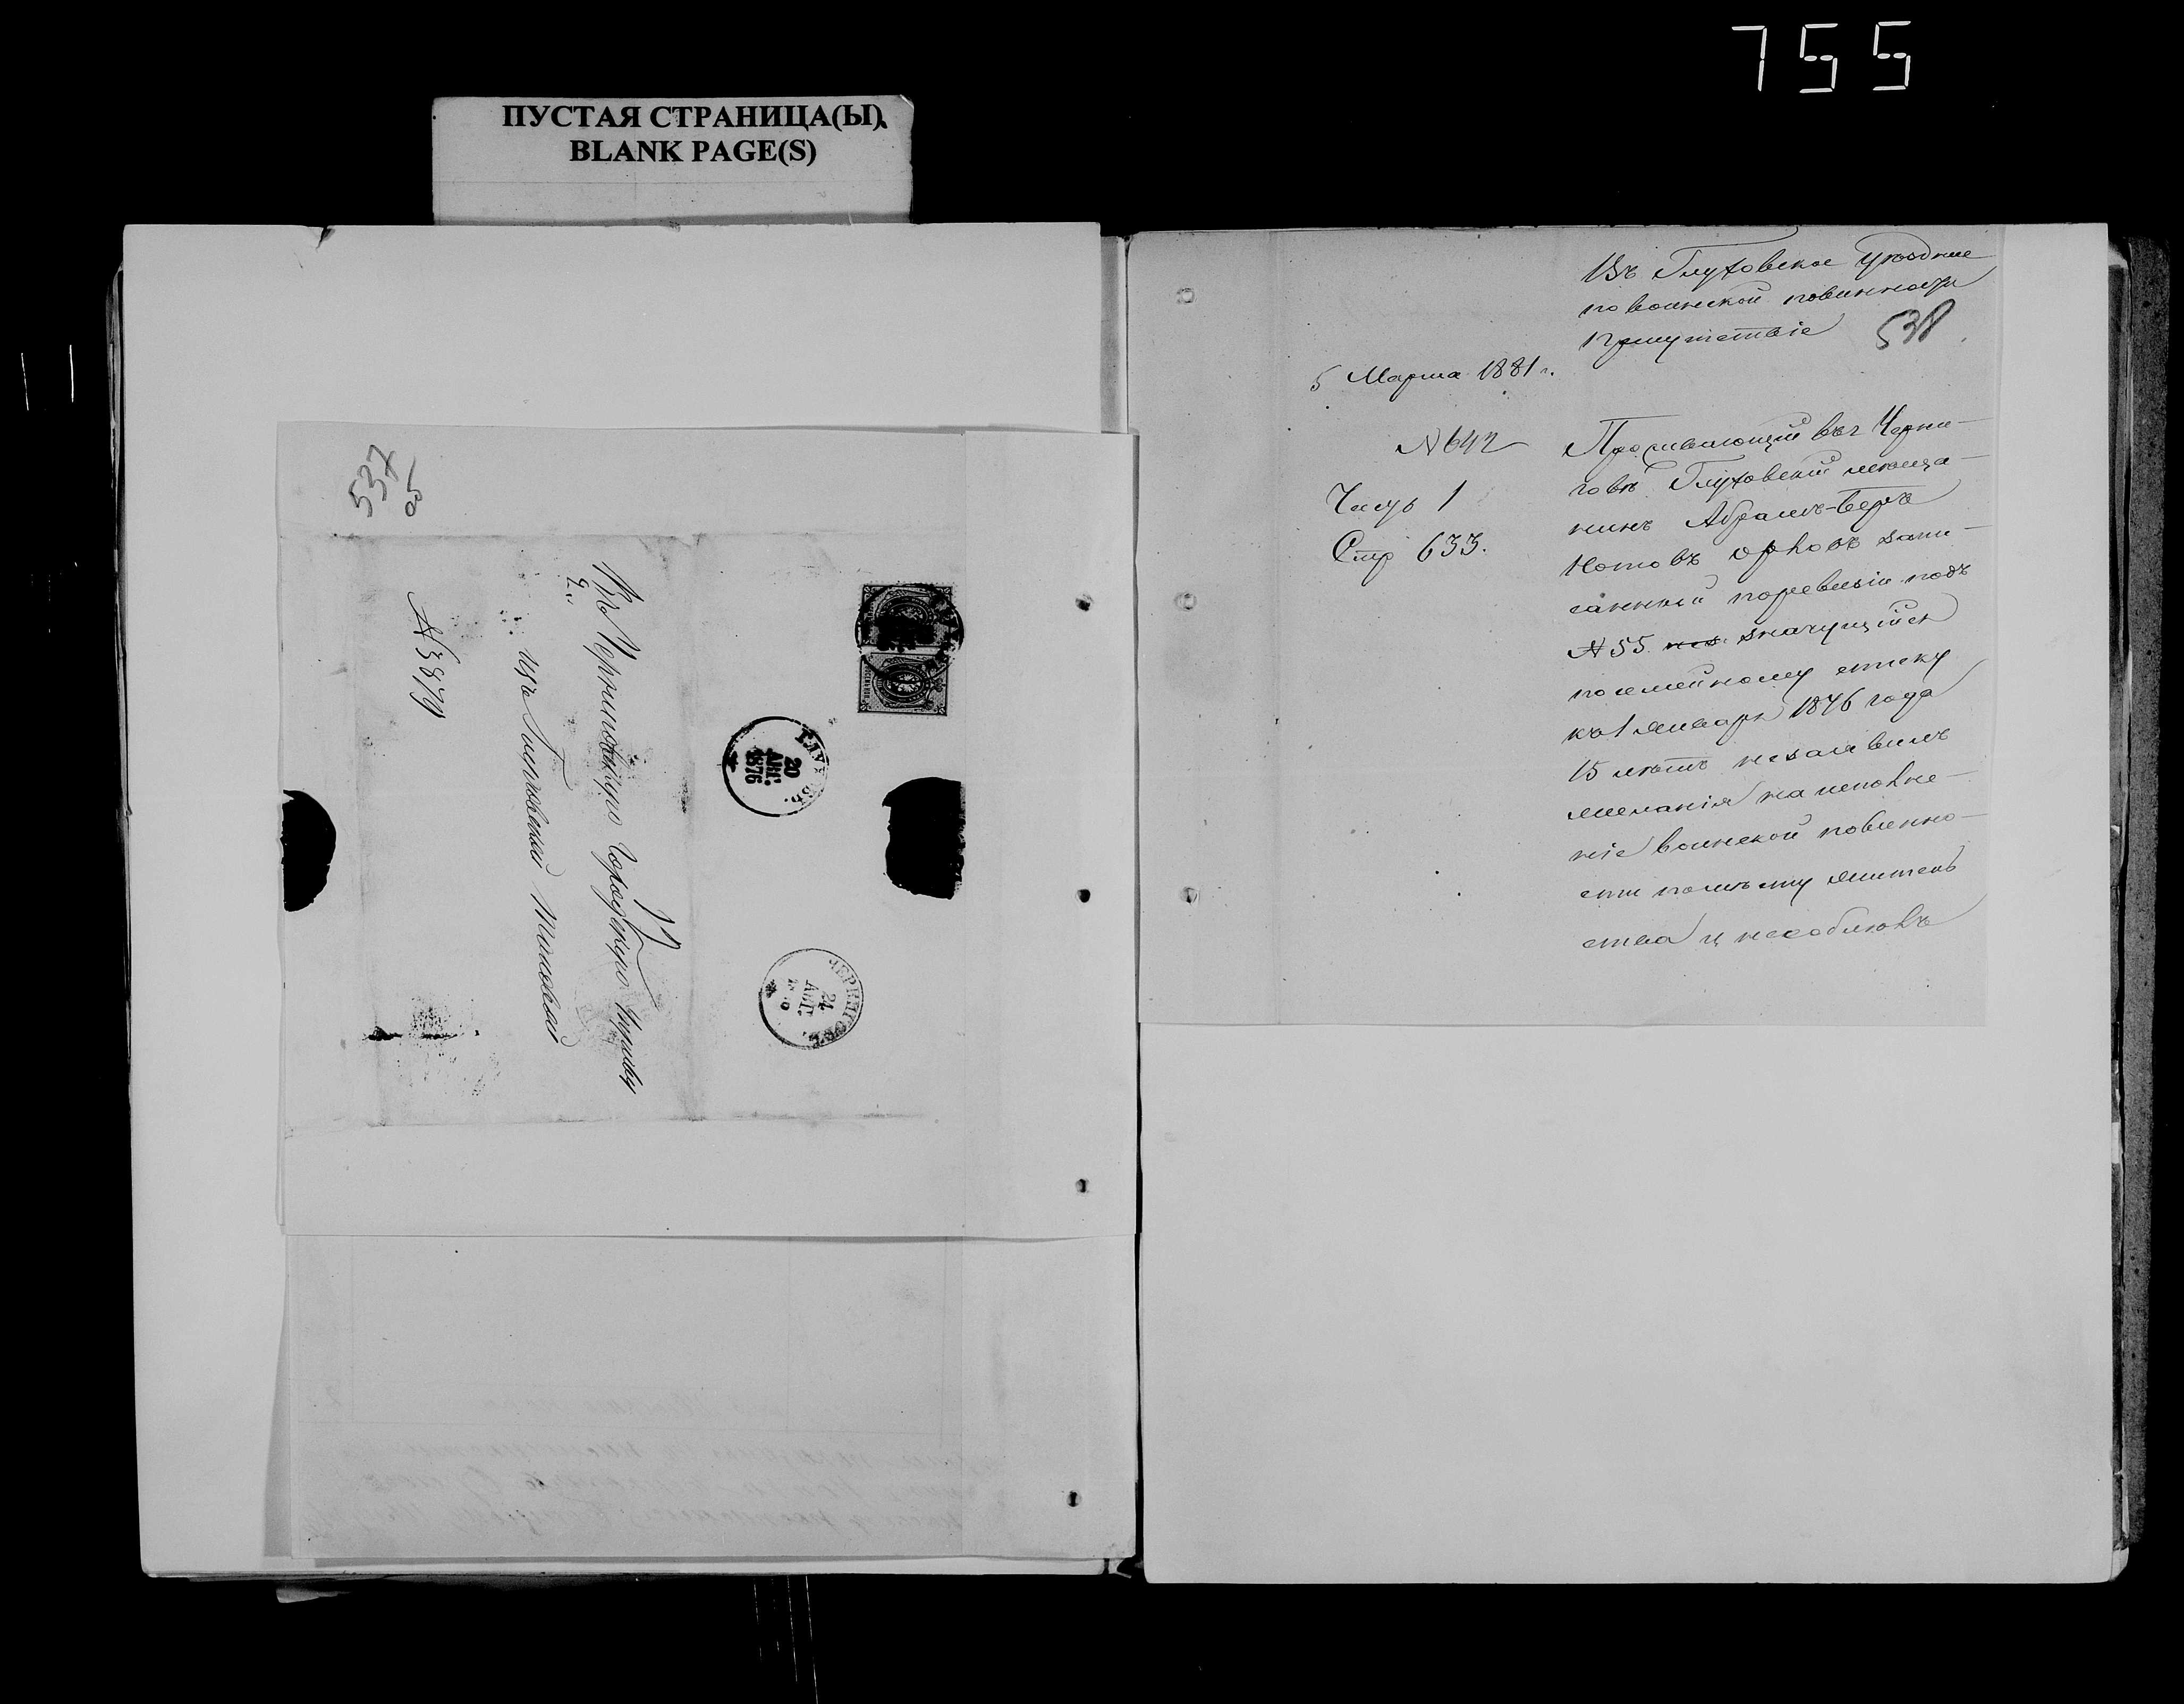 755
ПУСТАЯ СТРАНИЦА(Ы)
BLANK PAGE(S)
537
об
Въ Черниговскую Городскую Управу
изъ Глуховской
N 3879
20
АВГ.
1876
ЧЕРНИГОВЪ
21
АВГ.
Въ Глуховское Уѣздное
по воинской повинности
Присутствіе
538
5 Марта 1881 г.
N 642
Часть 1
Стр 633.
Проживающій въ г Черни-
говѣ Глуховскій мѣща-
нинъ Абрамъ-Беръ
запи-
санный по ревизіи подъ
N 55 значущійся
по семейному списку
къ 1 Января 1876 года
15 лѣтъ не заявилъ
желанія на исполне-
ніе воинской повинно-
сти по мѣсту житель
ства и не